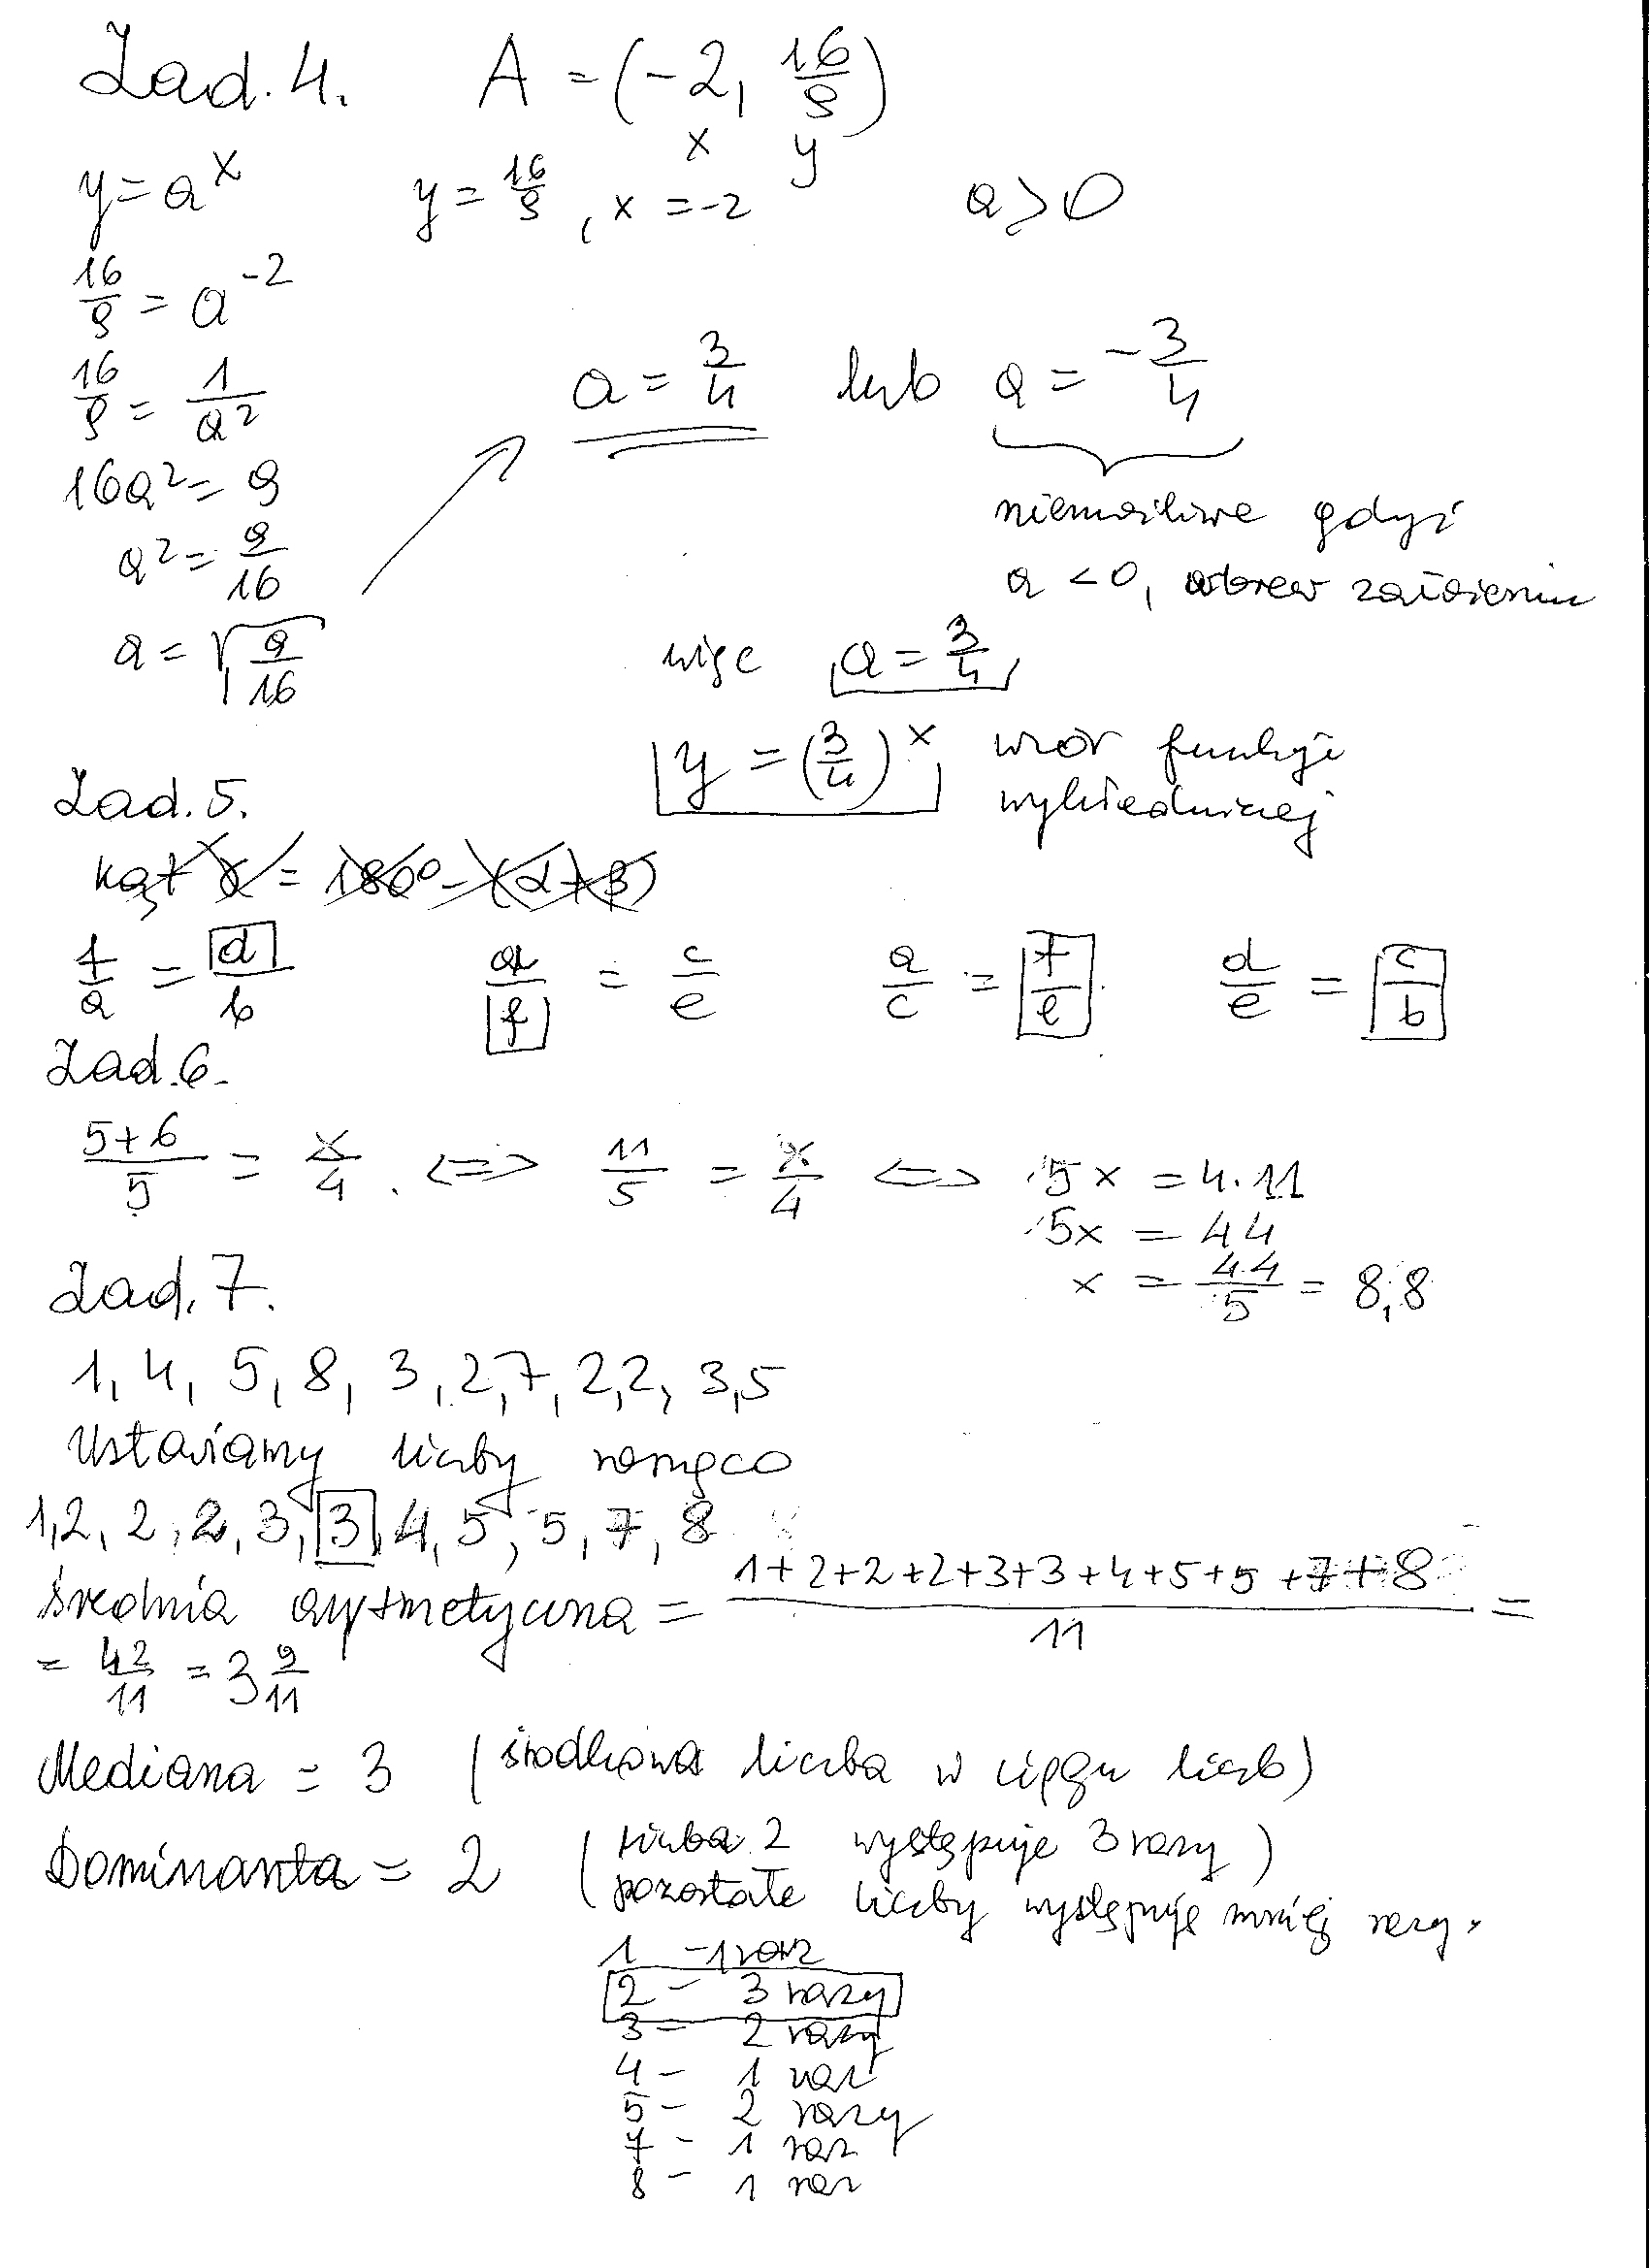 Zad. 4. A = (-2, 16/9)
x y
y = a^x y = 16/9, x = -2 a > 0
16/9 = a^-2
16/9 = 1/a² a = 3/4 lub a = -3/4
16a² = 9 niemożliwe gdyż
a² = 9/16 a < 0, wbrew założeniu
a = √(9/16) więc a = 3/4
y = (3/4)^x wzór funkcji
wykładniczej
Zad. 5.
kąt γ = 180° - (α + β)
f/a = d/b a/f = c/e a/c = f/e d/e = c/b
Zad. 6.
(5+6)/5 = x/4. <=> 11/5 = x/4 <=> 5x = 4·11
5x = 44
x = 44/5 = 8,8
Zad. 7.
1, 4, 5, 8, 3, 2, 7, 2, 2, 3, 5
Ustawiamy liczby rosnąco
1, 2, 2, 2, 3, 3, 4, 5, 5, 7, 8
średnia arytmetyczna = (1+2+2+2+3+3+4+5+5+7+8)/11 =
= 42/11 = 3 9/11
Mediana = 3 (środkowa liczba w ciągu liczb)
Dominanta = 2 (liczba 2 występuje 3 razy)
(pozostałe liczby występuję mniej razy.
1 - 1 raz
2 - 3 razy
3 - 2 razy
4 - 1 raz
5 - 2 razy
7 - 1 raz
8 - 1 raz